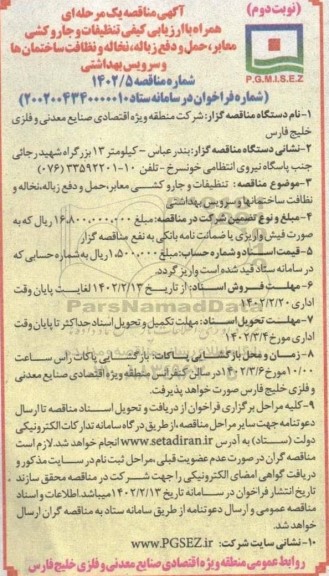 (نوبت دوم)
آگهی مناقصه یک مرحله ای
همراه با ارزیابی کیفی تنظیفات و جارو کشی
معابر، حمل و دفع زباله، نخاله و نظافت ساختمان ها
و سرویس بهداشتی
P.G.M.I.S.E.Z
شماره مناقصه ۱۴۰۲/۵
(شماره فراخوان در سامانه ستاد ۲۰۰۲۰۰۴۳۴۰۰۰۰۰۱۰)
۱-نام دستگاه مناقصه گزار: شرکت منطقه ویژه اقتصادی صنایع معدنی و فلزی
خلیج فارس
۲-نشانی دستگاه مناقصه گزار: بندرعباس - کیلومتر ۱۳ بزرگراه شهید رجائی
جنب پاسگاه نیروی انتظامی خونسرخ - تلفن ۱۰-۳۳۵۹۲۲۰۱ (۰۷۶)
۳-موضوع مناقصه: تنظیفات و جارو کشی معابر، حمل و دفع زباله، نخاله و
نظافت ساختمانها و سرویس بهداشتی
۴-مبلغ و نوع تضمین شرکت در مناقصه: مبلغ ۱۶،۸۰۰،۰۰۰،۰۰۰ ریال که به
صورت فیش واریزی یا ضمانت نامه بانکی به نفع مناقصه گزار
۵-قیمت اسناد و شماره حساب: مبلغ ۱،۵۰۰،۰۰۰ ریال به شماره حسابی که
در سامانه ستاد قید شده است واریز گردد.
۶-مهلت فروش اسناد: از تاریخ ۱۴۰۲/۲/۱۳ لغایت پایان وقت
اداری ۱۴۰۲/۲/۲۰
۷-مهلت تحویل اسناد: مهلت تکمیل و تحویل اسناد حداکثر تا پایان وقت
اداری مورخ ۱۴۰۲/۳/۴
۸-زمان و محل بازگشایی پاکات: بازگشایی پاکات راس ساعت
۱۰/۰۰ مورخ ۱۴۰۲/۳/۶ در سالن کنفرانس منطقه ویژه اقتصادی صنایع معدنی
و فلزی خلیج فارس صورت خواهد پذیرفت.
۹-کلیه مراحل برگزاری فراخوان از دریافت و تحویل اسناد مناقصه تا ارسال
دعوتنامه جهت سایر مراحل مناقصه، از طریق درگاه سامانه تدارکات الکترونیکی
دولت (ستاد) به آدرس www.setadiran.ir انجام خواهد شد. لازم است
مناقصه گران در صورت عدم عضویت قبلی، مراحل ثبت نام در سایت مذکور و
دریافت گواهی امضای الکترونیکی را جهت شرکت در مناقصه محقق سازند
تاریخ انتشار فراخوان در سامانه تاریخ ۱۴۰۲/۲/۱۳ میباشد. اطلاعات و اسناد
مناقصه عمومی و ارسال دعوتنامه از طریق سامانه ستاد به مناقصه گران ارسال
خواهد شد.
۱۰-نشانی سایت شرکت: www.PGSEZ.ir
روابط عمومی منطقه ویژه اقتصادی صنایع معدنی و فلزی خلیج فارس
ParsNamadData